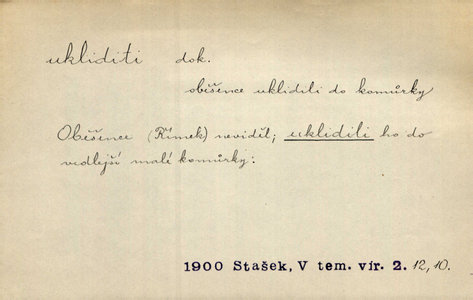 ukliditi dok.
oběšence uklidili do komůrky
Oběšence (Římek) neviděl; uklidili ho do
vedlejší malé komůrky:
1900 Stašek, V tem. vír. 2. 12, 10.